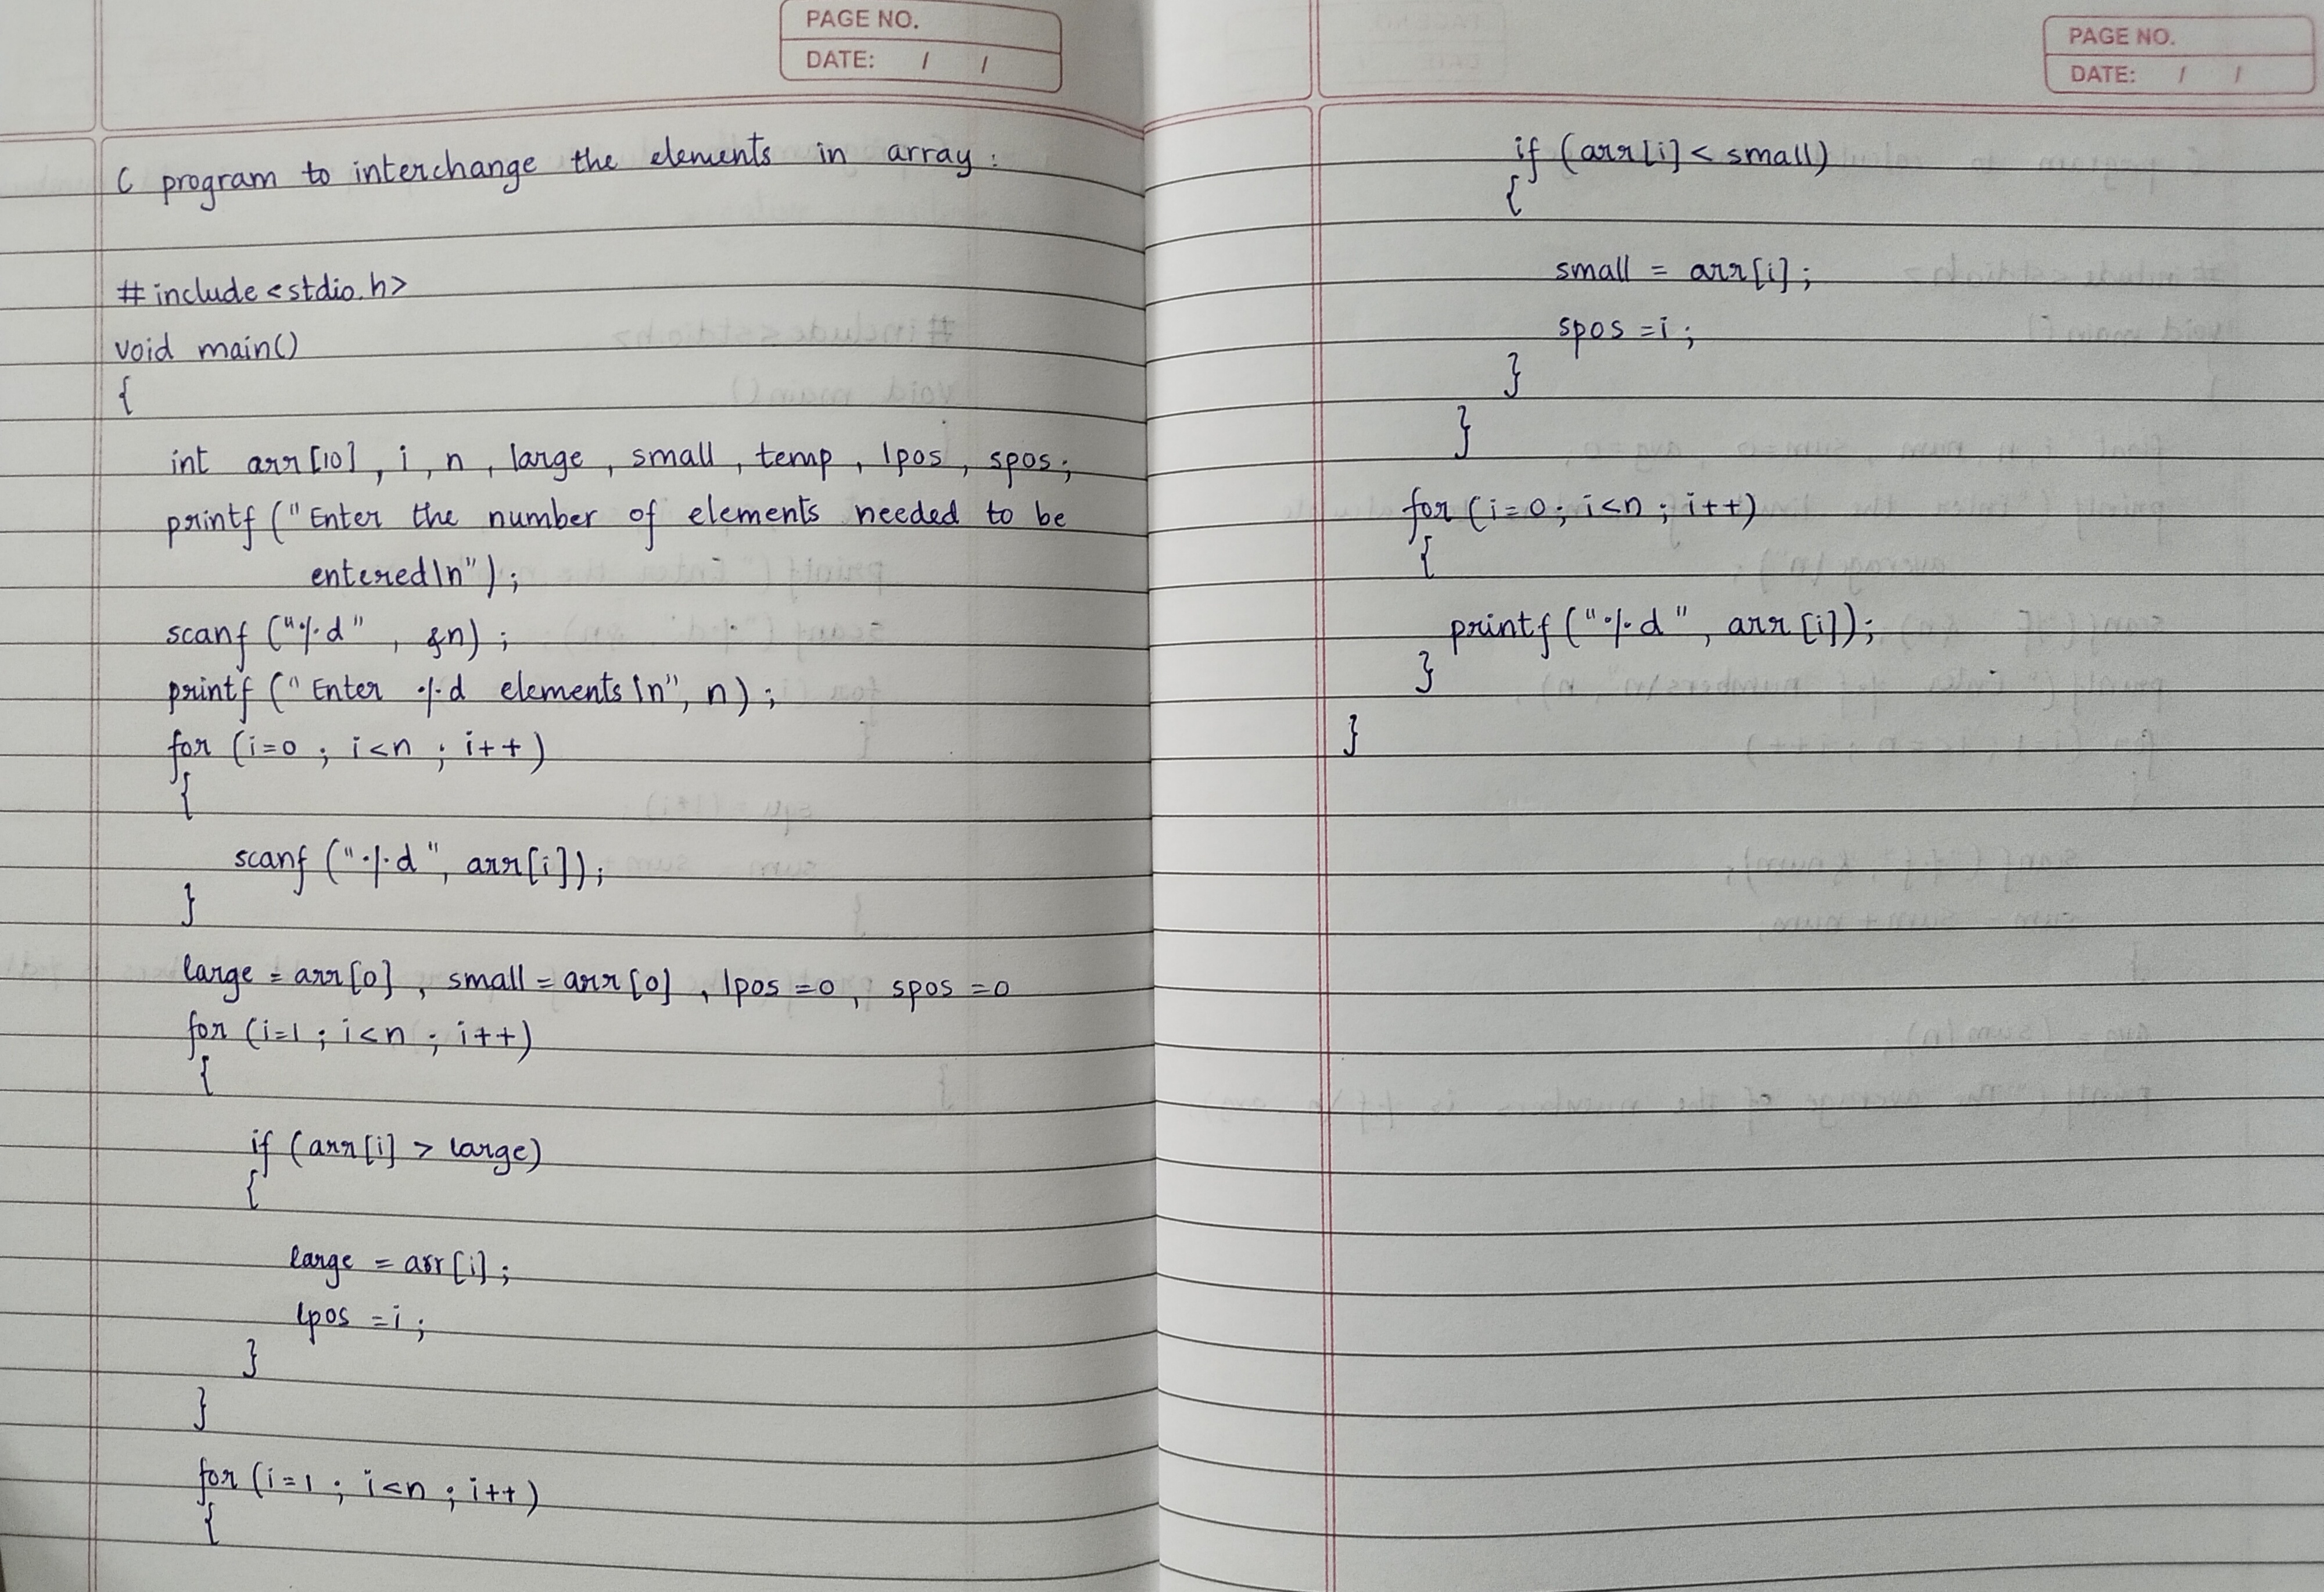 PAGE NO.
DATE: / /
C program to interchange the elements in array :
#include<stdio.h>
void main()
{
int arr[10], i, n, large, small, temp, lpos, spos;
printf ("Enter the number of elements needed to be
entered\n");
scanf ("%d", &n);
printf ("Enter %d elements\n", n);
for (i=0; i<n; i++)
{
scanf ("%d", arr[i]);
}
large = arr[0], small = arr[0], lpos =0, spos =0
for (i=1; i<n; i++)
{
if (arr[i] > large)
{
large = arr[i];
lpos =i;
}
}
for (i=1; i<n; i++)
{
PAGE NO.
DATE: / /
if (arr[i] < small)
{
small = arr[i];
spos =i;
}
}
for (i=0; i<n; i++)
{
printf ("%d", arr[i]);
}
}